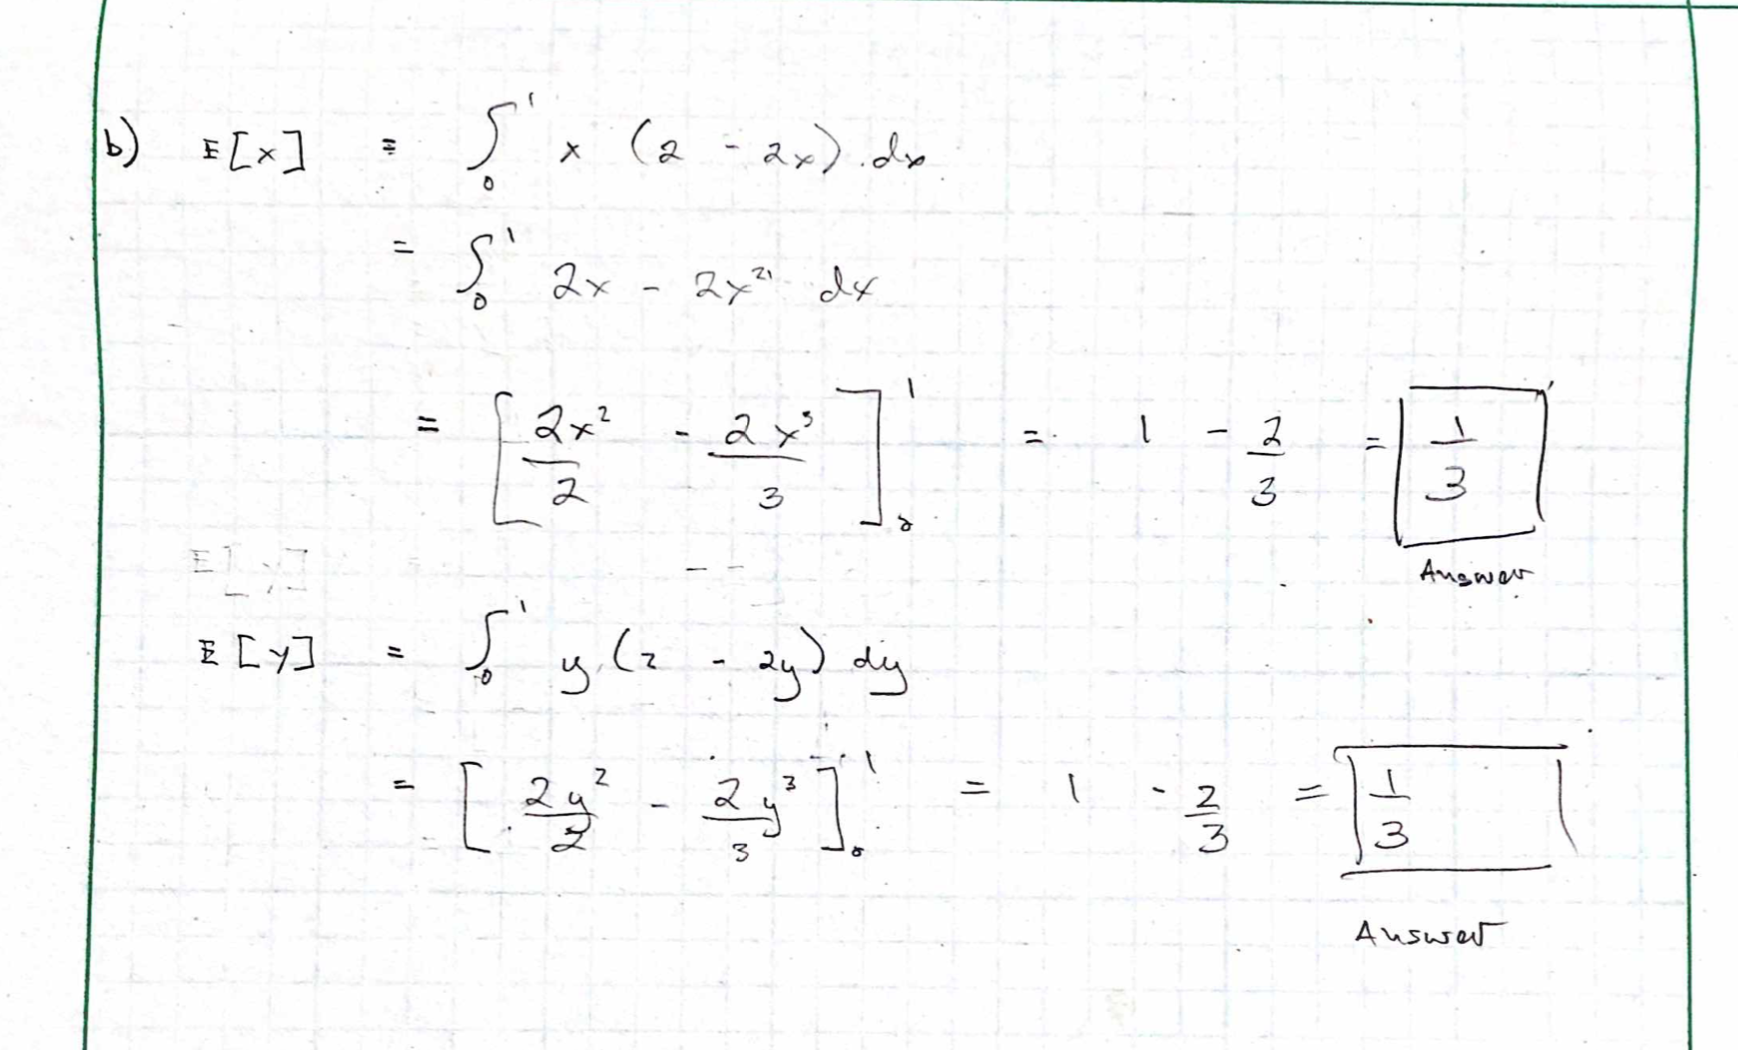 b) E[x] = ∫₀¹ x (2 - 2x) dx
= ∫₀¹ 2x - 2x² dx
= [2x²/2 - 2x³/3]₀¹ = 1 - 2/3 = 1/3
Answer
E[y] = ∫₀¹ y (2 - 2y) dy
= [2y²/2 - 2y³/3]₀¹ = 1 - 2/3 = 1/3
Answer